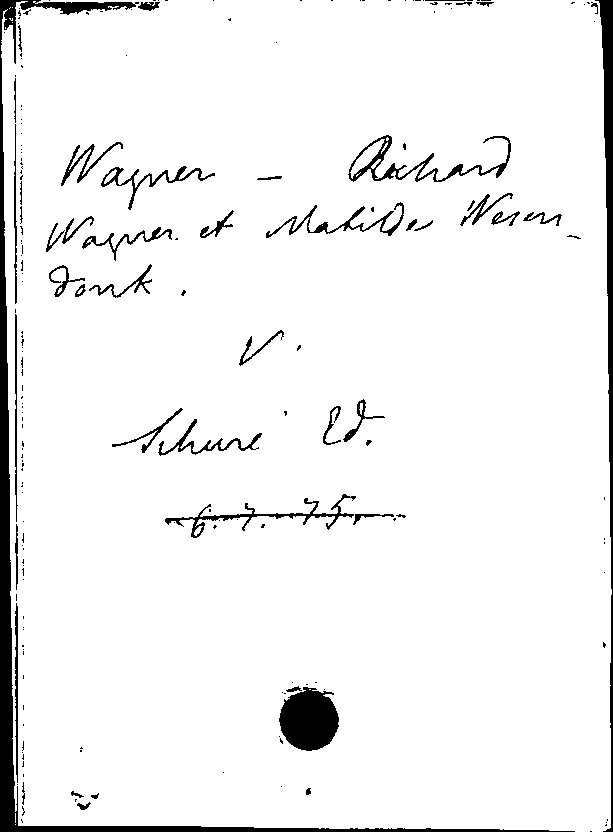 Wagner – Richard
Wagner et Matilde Wesen-
donk.
V.
Schuré Ed.
6.7.75.